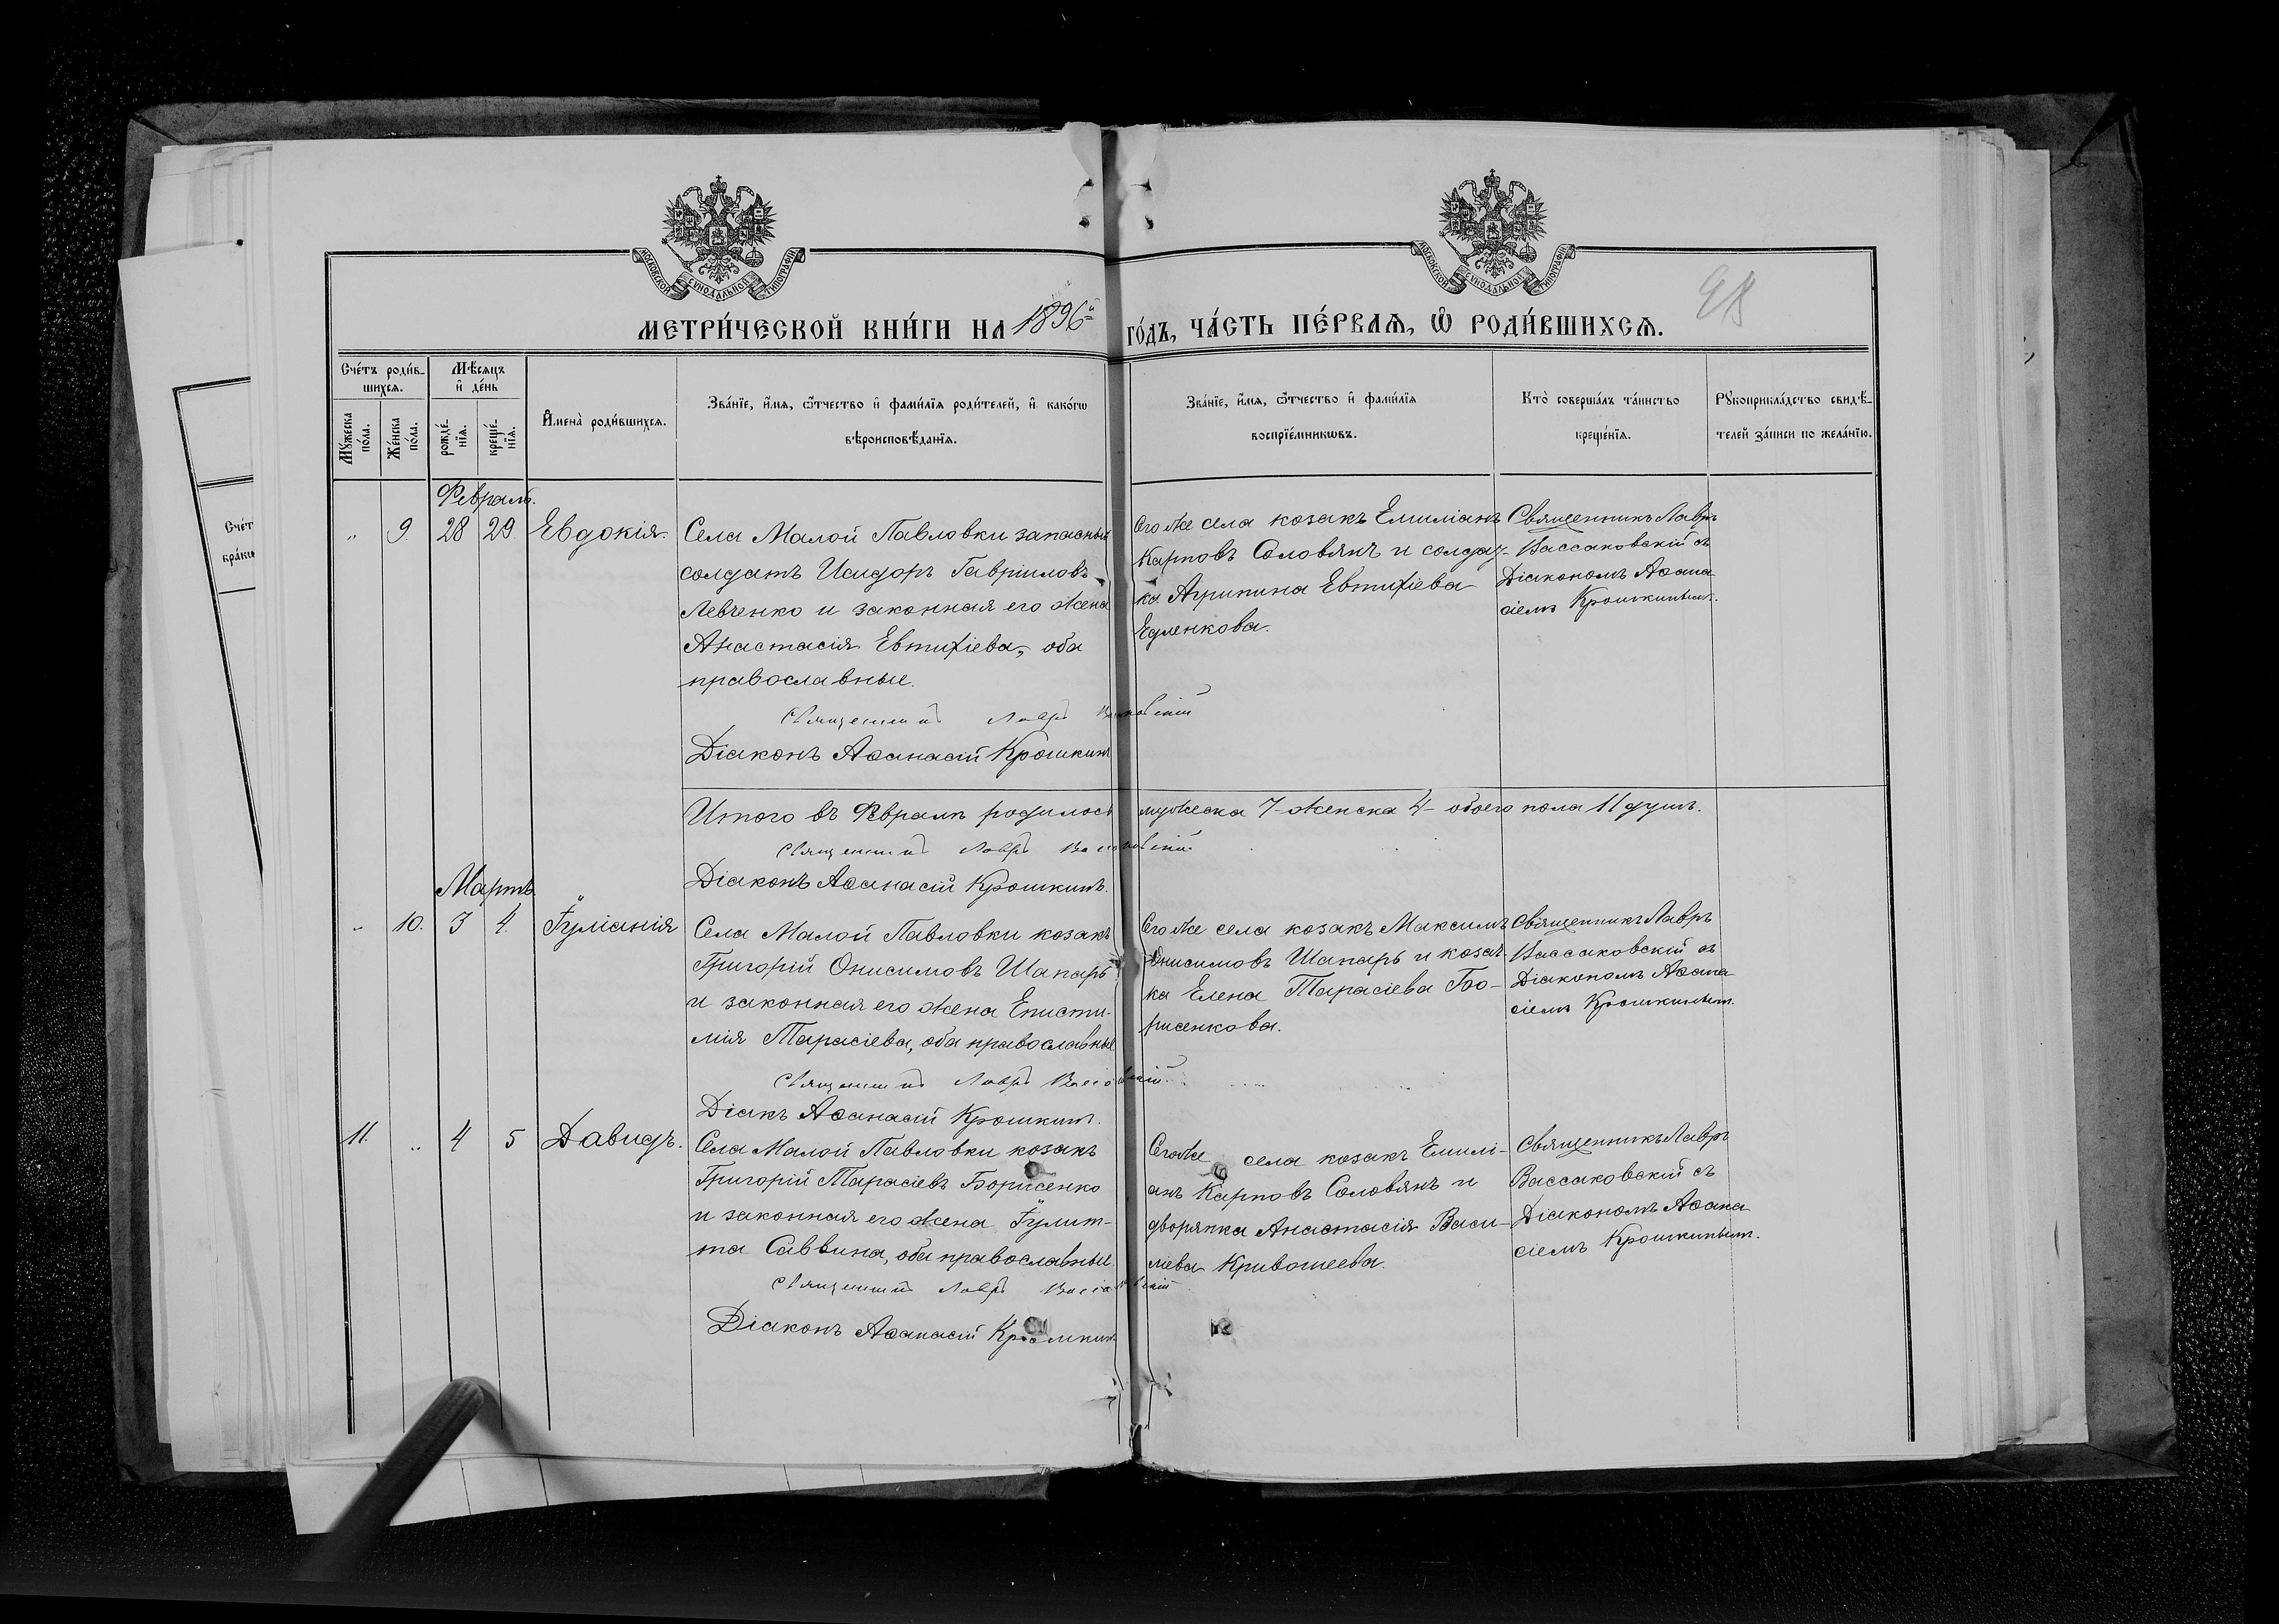 МОСКОВСКОЙ СѴНОДАЛЬНОЙ ТИПОГРАФІИ
МОСКОВСКОЙ СѴНОДАЛЬНОЙ ТИПОГРАФІИ
МЕТРИ́ЧЕСКОЙ КНИ́ГИ НА 1896й
ГО́ДЪ, ЧА́СТЬ ПЕ́РВАѦ, Ѡ РОДИ́ВШИХСѦ.
Сче́тъ роди́в-
шихсѧ.
Мꙋ́жеска
по́ла.
Же́нска
по́ла.
Мѣ́сѧцъ
и҆ де́нь
рожде́-
нїѧ.
креще́-
нїѧ.
И҆мена̀ роди́вшихсѧ.
Зва́нїе, и҆́мѧ, ѻ҆́тчество и҆ фами́лїѧ роди́телей, и҆ како́гѡ
вѣроисповѣ́данїѧ.
Зва́нїе, и҆́мѧ, ѻ҆́тчество и҆ фами́лїѧ
воспрїе́мникѡвъ.
Кто̀ соверша́лъ та́инство
креще́нїѧ.
Рꙋкоприкла́дство свидѣ́-
телей за́писи по жела́нїю.
Счет
браки
Февраль.
" 9. 28 29 Евдокія.
Села Малой Павловки запасный
солдатъ Исидоръ Гавріиловъ
Левченко и законная его жена
Анастасія Евтихіева, оба
православные.
Священникъ Лавръ Вассаковскій
Діаконъ Аѳанасій Крошкинъ
Его же села козакъ Емиліанъ
Карповъ Соловянъ и солдат-
ка Агрипина Евтихіева
Едленкова.
Священникъ Лавръ
Вассаковскій съ
Діакономъ Аѳана
сіемъ Крошкинымъ.
Итого въ Февралѣ родилось мужеска 7 женска 4 – обоего пола 11 душъ.
Священникъ Лавръ Вассаковскій
Діаконъ Аѳанасій Крошкинъ.
Мартъ
" 10. 3 4 Іуліанія
Села Малой Павловки козакъ
Григорій Онисимовъ Шапарь
и законная его жена Еписти-
мія Тарасіева, оба православные
Священникъ Лавръ Вассаковскій
Діакъ Аѳанасій Крошкинъ.
Его же села козакъ Максимъ
Онисимовъ Шапарь и козач-
ка Елена Тарасіева Бо-
рисенкова.
Священникъ Лавръ
Вассаковскій съ
Діакономъ Аѳана
сіемъ Крошкинымъ.
11. " 4 5 Давидъ.
Села Малой Павловки козакъ
Григорій Тарасіевъ Борисенко
и законная его жена Іулит-
та Саввина, оба православные
Священникъ Лавръ Вассаковскій
Діаконъ Аѳанасій Крошкинъ
Его же села козакъ Емилі-
анъ Карповъ Соловянъ и
дворянка Анастасія Васи-
ліева Кривошеева.
Священникъ Лавръ
Вассаковскій съ
Діакономъ Аѳана
сіемъ Крошкинымъ.